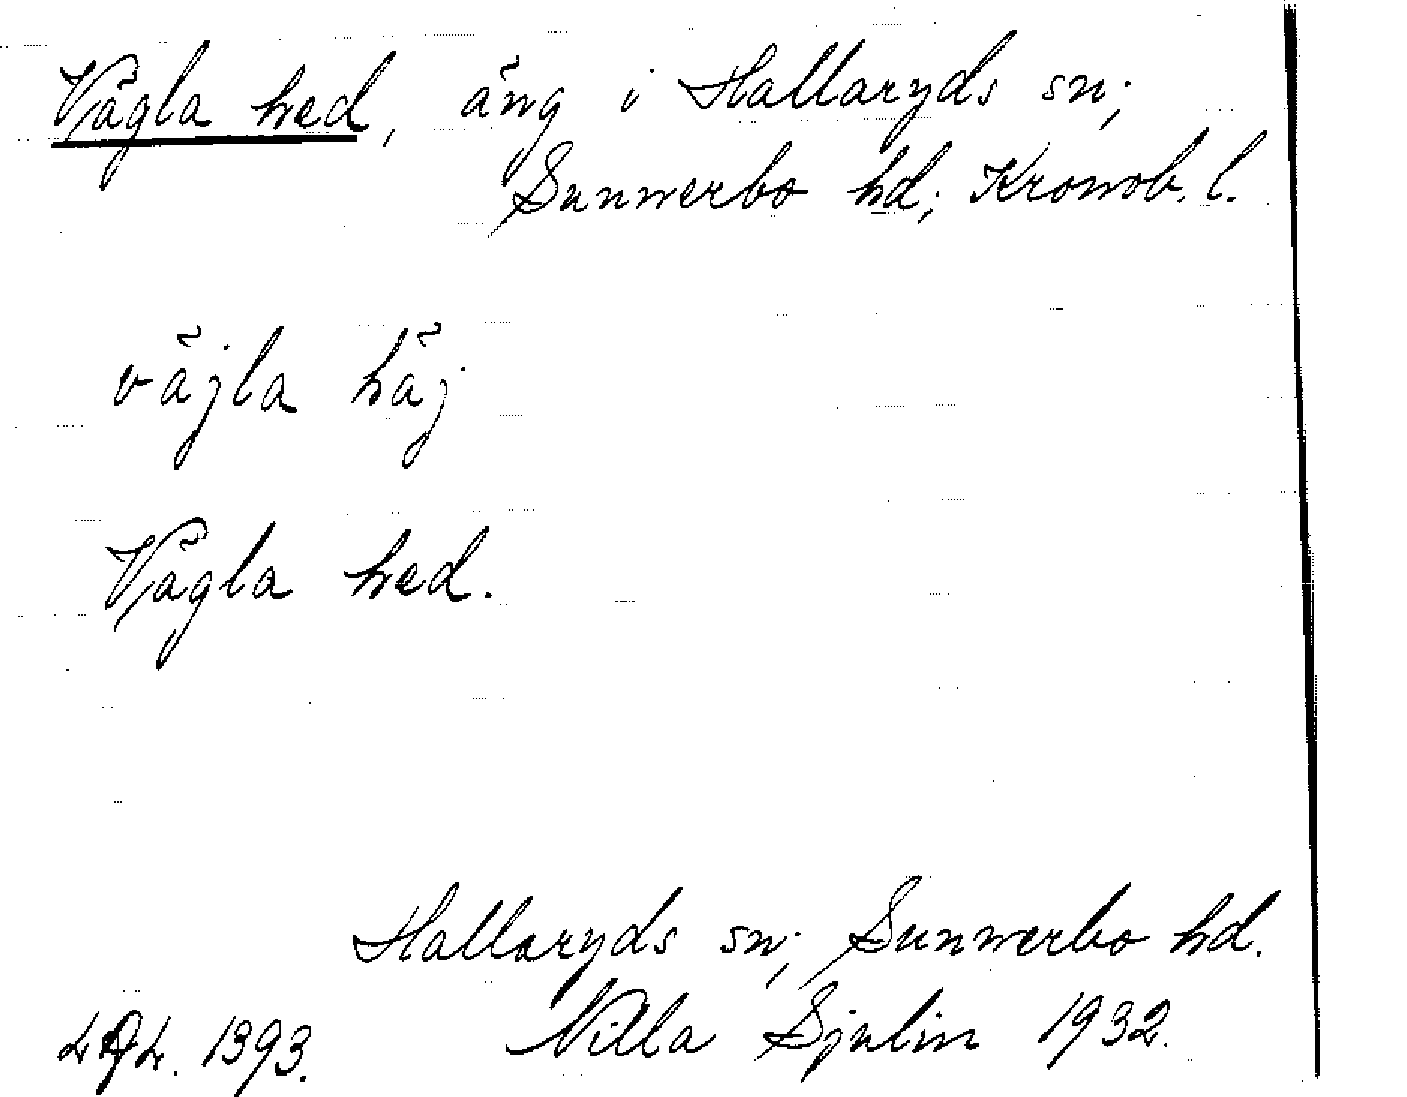 Vägla hed, äng i Hallaryds sn;
Sunnerbo hd; Kronob. l.
väjla häj
Vägla hed.
Hallaryds sn; Sunnerbo hd.
1393. Nilla Sjulin 1932.